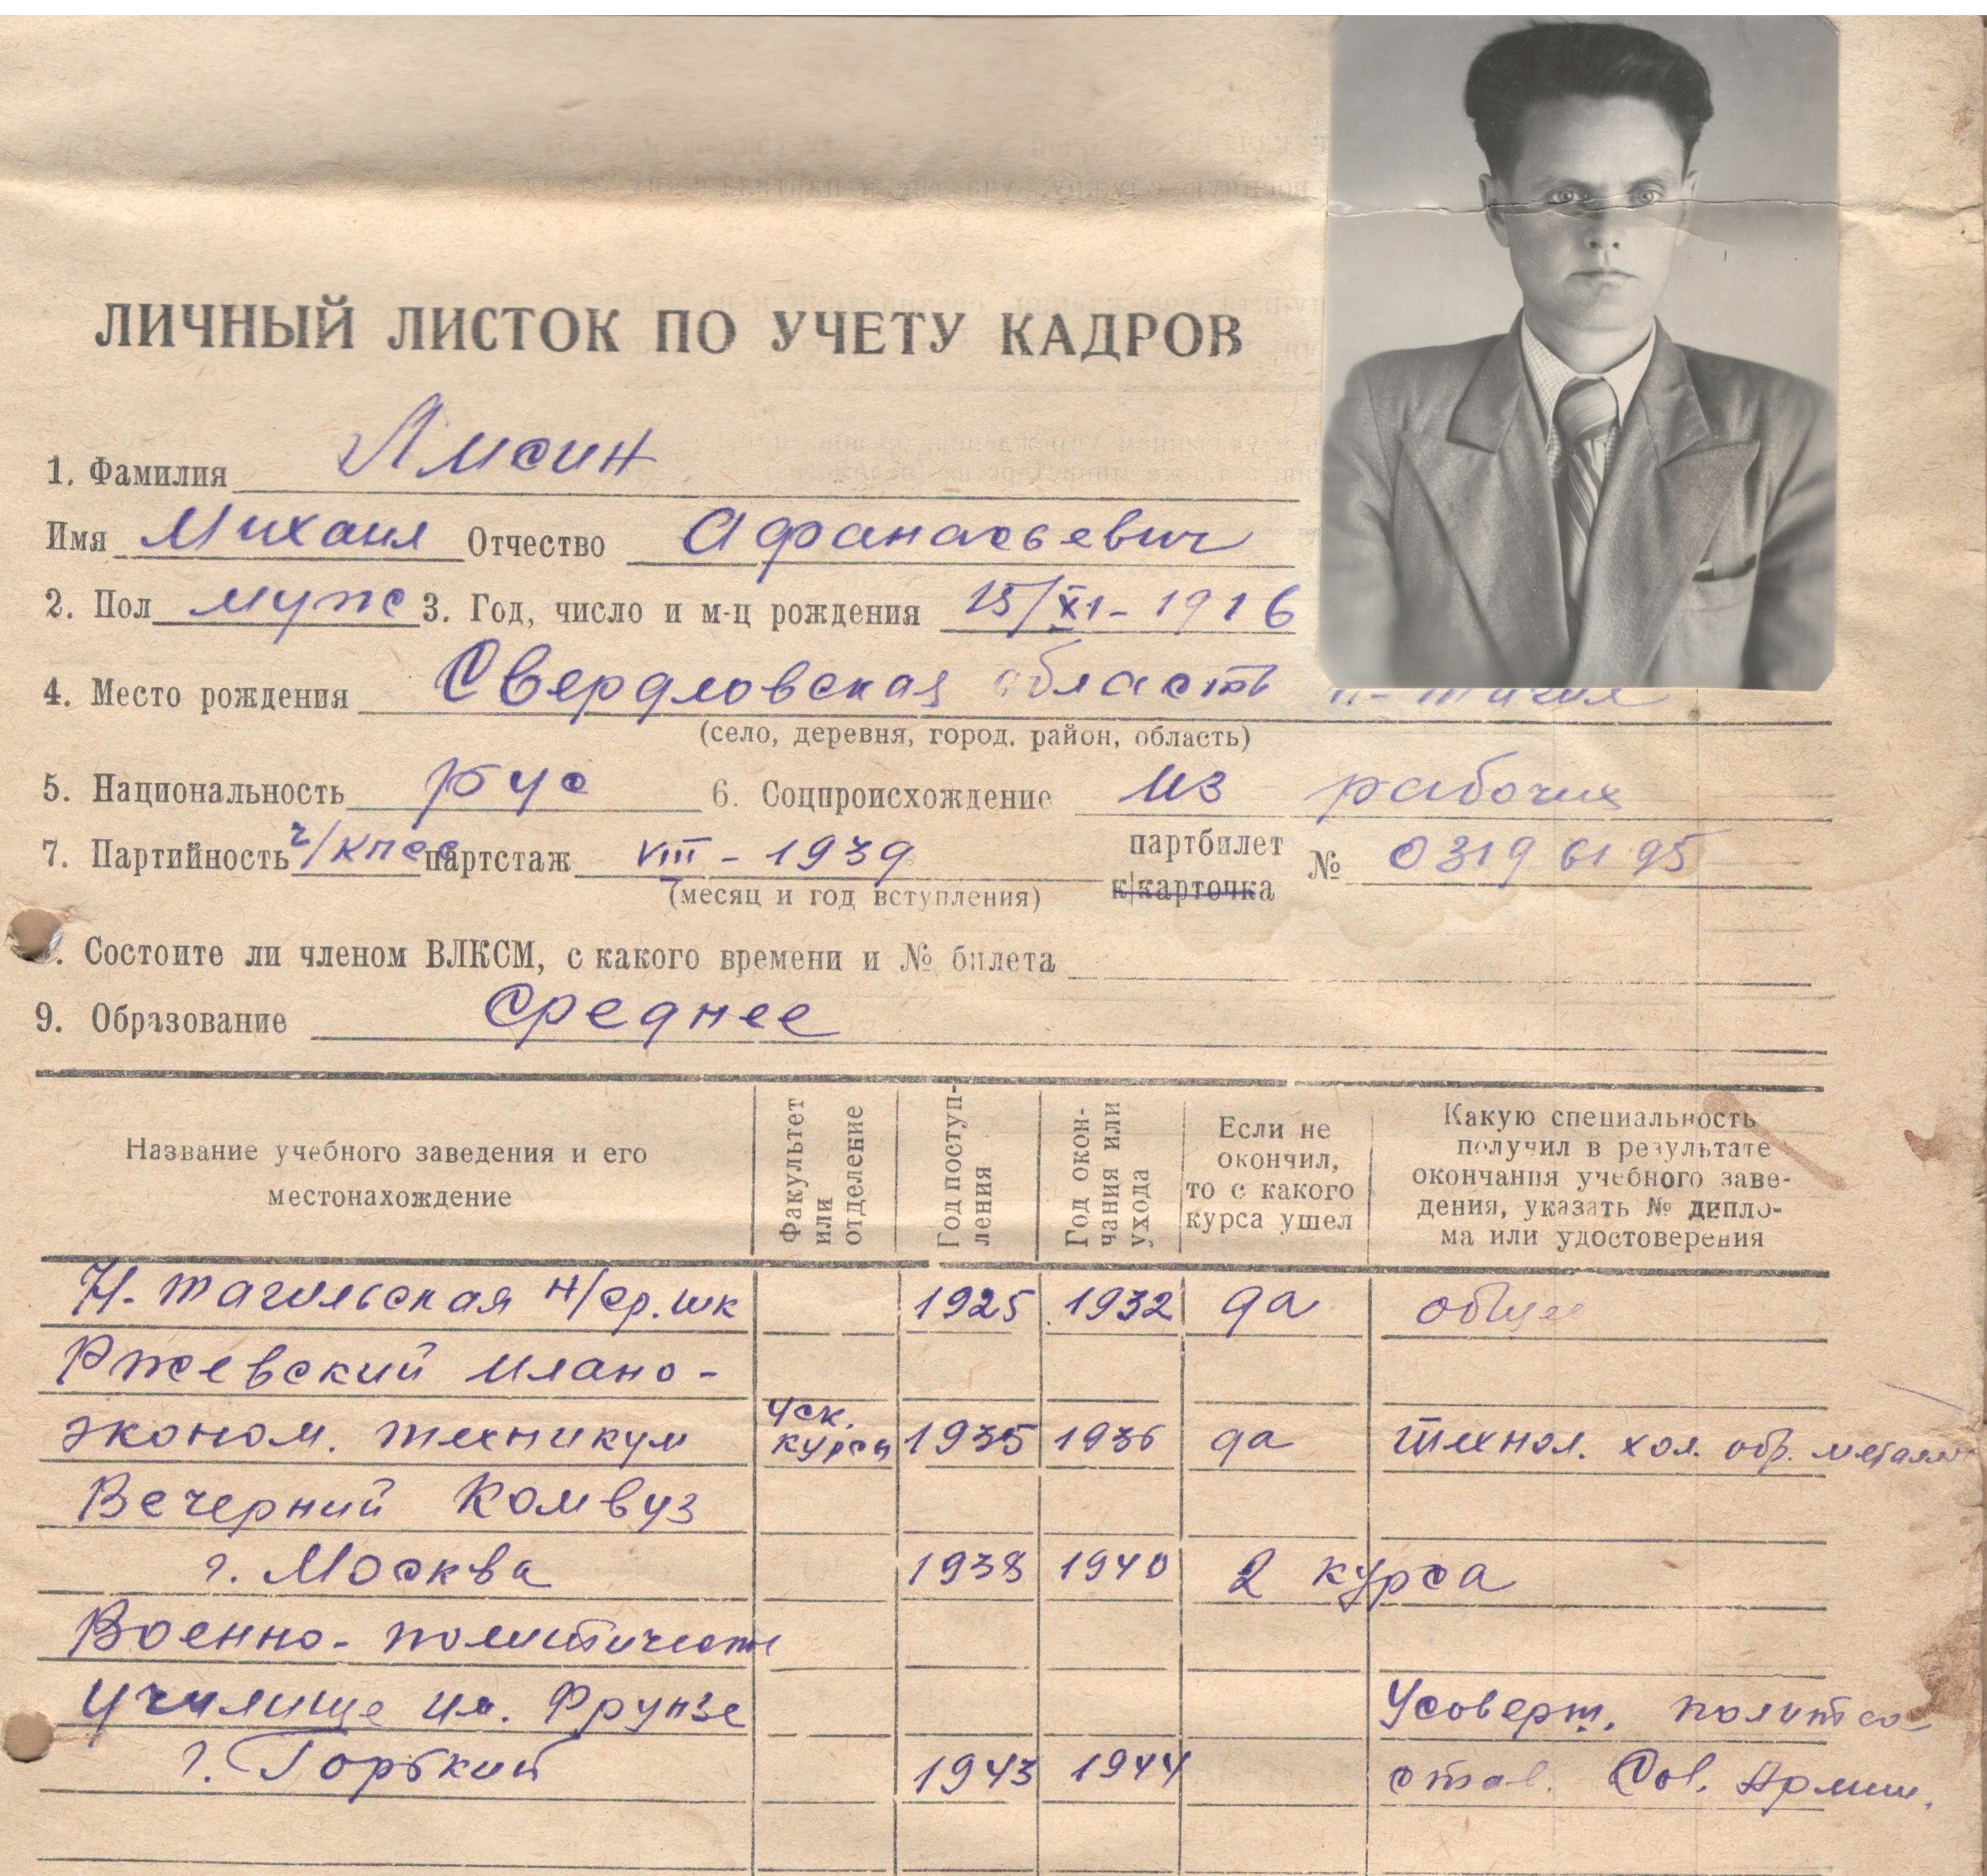 ЛИЧНЫЙ ЛИСТОК ПО УЧЕТУ КАДРОВ
1. Фамилия Амсин
Имя Михаил Отчество Афанасьевич
2. Пол муж 3. Год, число и м-ц рождения 15/XI - 1916
4. Место рождения Свердловская область н-тагил
(село, деревня, город, район, область)
5. Национальность рус 6. Соцпроисхождение из рабочих
7. Партийность ч/кпсс партстаж VIII - 1939 партбилет № 03196195
(месяц и год вступления) к/карточка
. Состоите ли членом ВЛКСМ, с какого времени и № билета
9. Образование среднее
Название учебного заведения и его местонахождение
Факультет или отделение
Год поступ-
ления
Год окон-
чания или
ухода
Если не
окончил,
то с какого
курса ушел
Какую специальность
получил в результате
окончания учебного заве-
дения, указать № дипло-
ма или удостоверения
Н. тагильская н/ср. шк 1925 1932 да общее
Ржевский плано-
эконом. техникум курсы 1935 1936 да технол. хол. обр. металл
Вечерний Комвуз
г. Москва 1938 1940 2 курса
Военно-политическ
училище им. Фрунзе Усоверш. политсо
г. Горький 1943 1944 став. Сов. Армии.